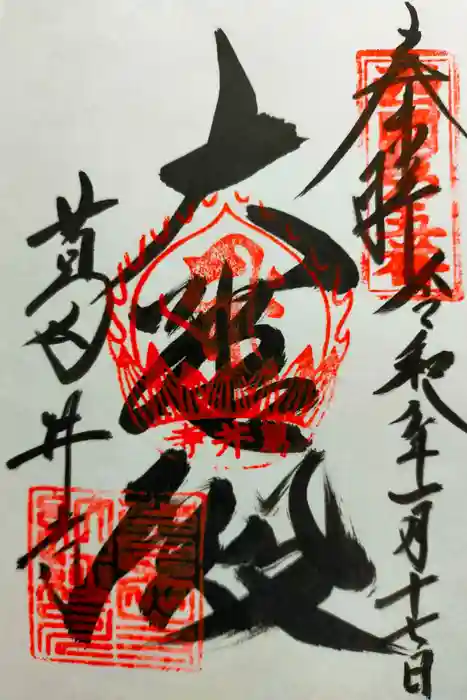 奉拝 令和八年一月十七日
大悲殿
葛井寺
葛井寺